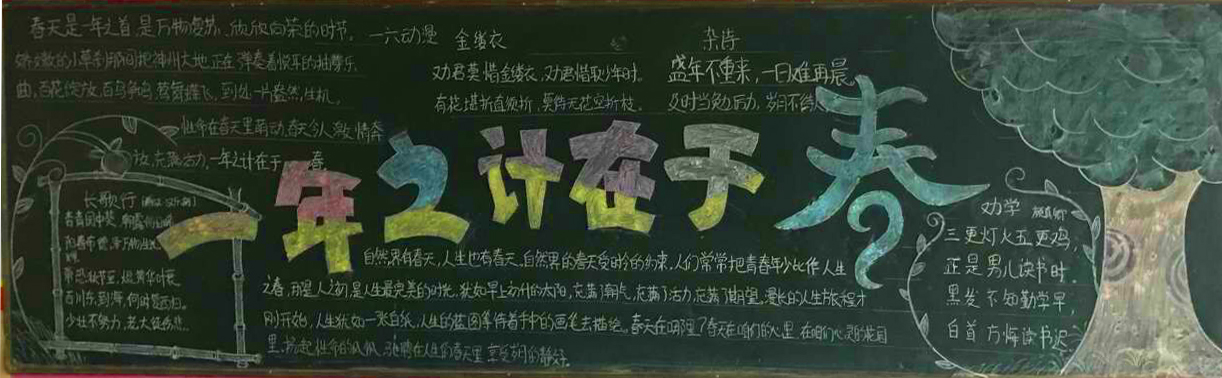 春天是一年之首,是万物复苏、欣欣向荣的时节,
娇嫩的小草刹那间把神州大地正在弹奏着悦耳的抽芽乐
曲,百花绽放,百鸟争鸣,莺舞蝶飞,到处一片盎然生机,
性命在春天里萌动,春天令人激情奔
放,充满活力,一年之计在于 春
一六动漫
金缕衣
劝君莫惜金缕衣,劝君惜取少年时。
有花堪折直须折,莫待无花空折枝。
杂诗
盛年不重来,一日难再晨
及时当勉励,岁月不待人
一年之计在于春
长歌行
青青园中葵,朝露
阳春布德泽,万物生光
辉
常恐秋节至,焜黄华叶衰
百川东到海,何时复西归。
少壮不努力,老大徒伤悲。
自然界有春天,人生也有春天。自然界的春天受时令的约束,人们常常把青春年少比作人生
之春,而是人之初,是人生最完美的时光,犹如早上初升的太阳,充满了朝气,充满了活力,充满了期望,漫长的人生旅程才
刚开始,人生犹如一张白纸,人生的蓝图等待着手中的画笔去描绘。春天在哪里?春天在咱们的心里,在咱们心灵的花园
里,扬起性命的风帆,驰骋在人生的春天里,享受到的静好
劝学
三更灯火五更鸡,
正是男儿读书时。
黑发不知勤学早,
白首方悔读书迟